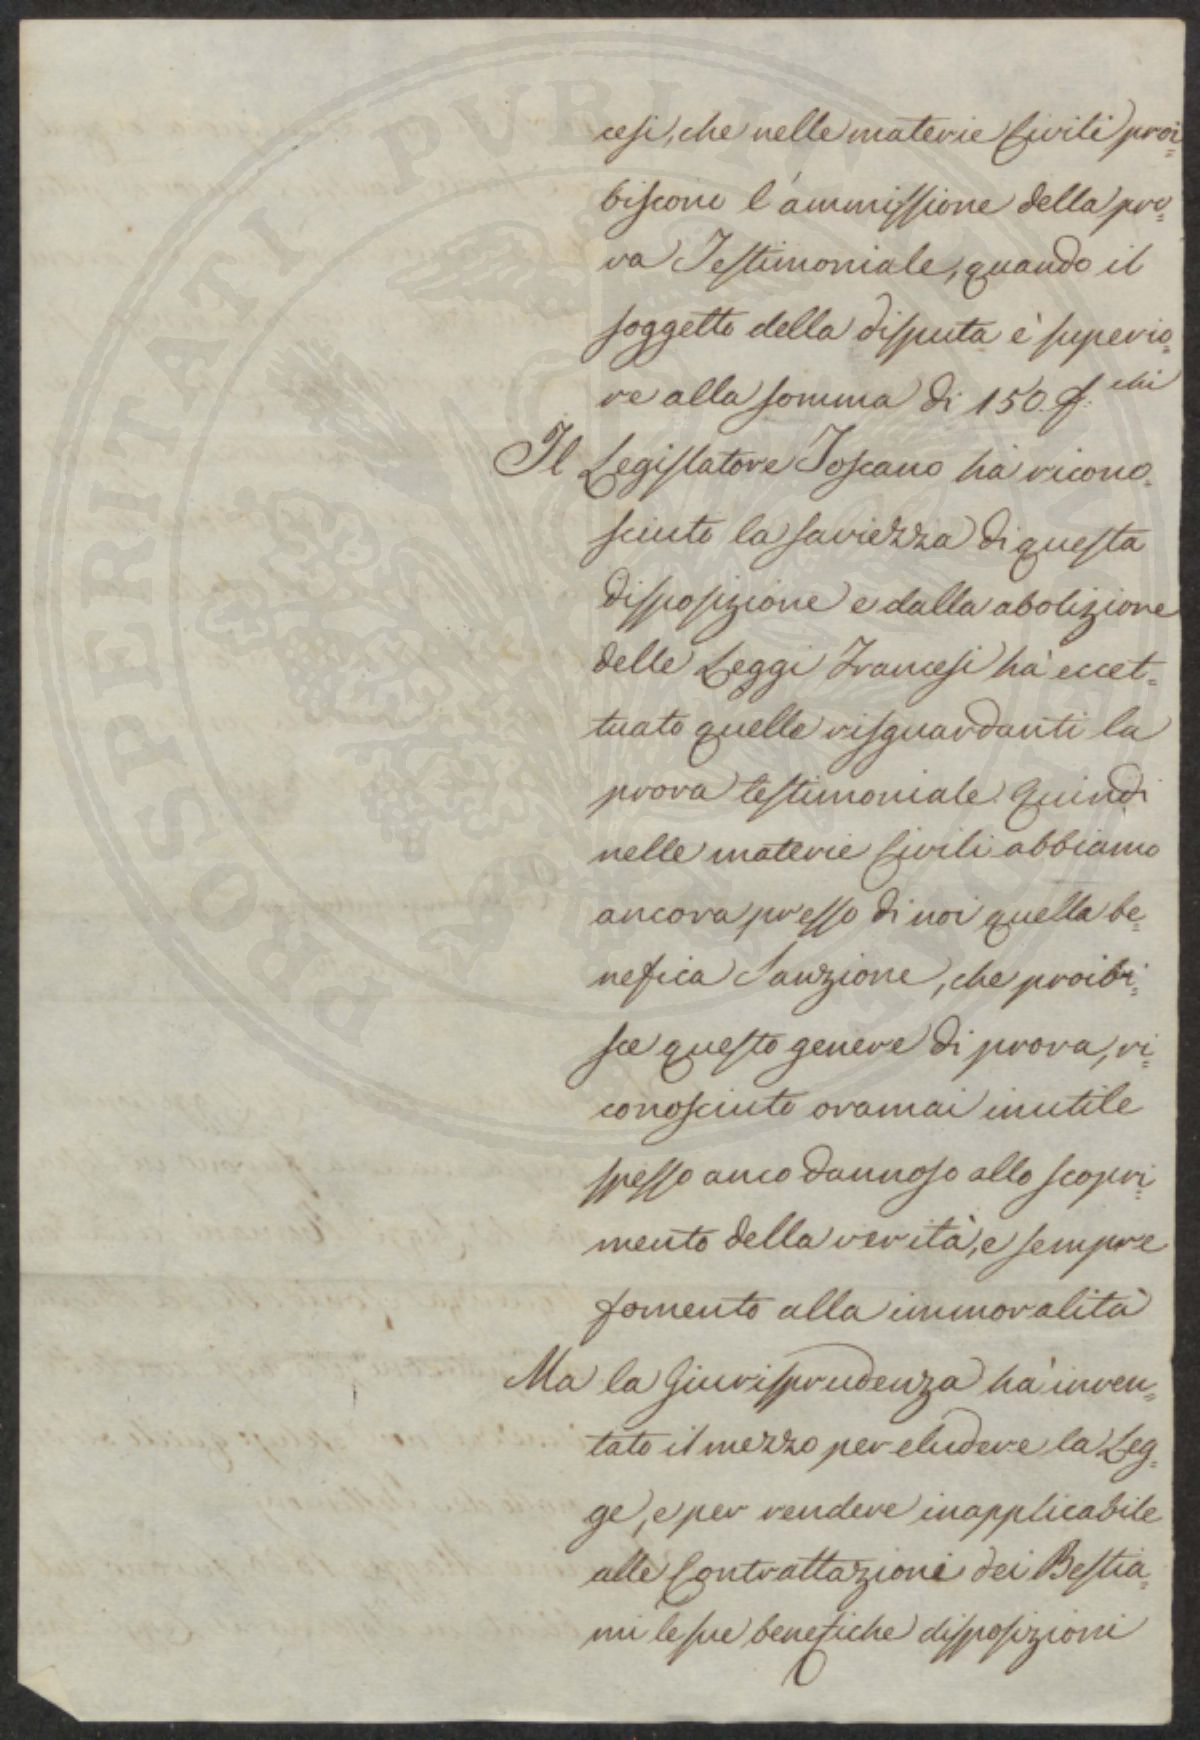 cesi, che nelle materie Civili proi=
biscono l'ammissione della pro=
va Testimoniale, quando il
soggetto della disputa è superio=
re alla somma di 150. f.chi
Il Legislatore Toscano ha ricono=
sciuto la saviezza di questa
disposizione e dalla abolizione
delle Leggi Francesi ha eccet=
tuato quelle risguardanti la
prova testimoniale. Quindi
nelle materie Civili abbiamo
ancora presso di noi quella be=
nefica Sanzione, che proibi=
sce questo genere di prova, ri=
conosciuto oramai inutile
spesso anco dannoso allo scopri=
mento della verità, e sempre
fomento alla immoralità
Ma la Giurisprudenza ha inven=
tato il mezzo per eludere la Leg=
ge, e per rendere inapplicabile
alle Contrattazioni dei Bestia=
mi le sue benefiche disposizioni
PROSPERITATI PUBLICAE